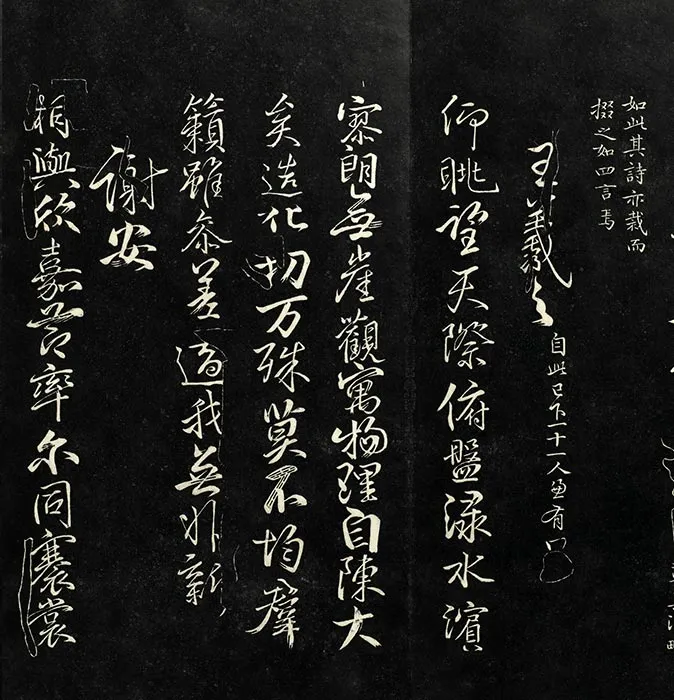 如此其詩亦裁而
掇之如四言焉
王羲之 自此已下一十一人 有
仰眺望天際俯盤淥水濱
寥朗無崖觀寓物理自陳大
矣造化功万殊莫不均羣
籟雖參差適我無非新
謝安
相與欣嘉節率尔同褰裳